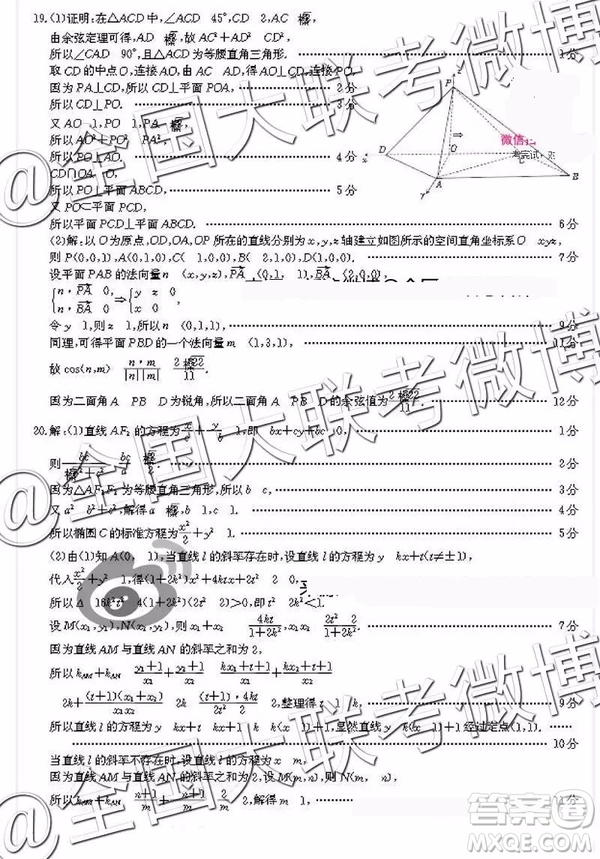 19.(1)证明:在△ACD中,∠ACD 45°,CD 2,AC
由余弦定理可得,AD ,故AC²+AD² CD²,
所以∠CAD 90°,且△ACD为等腰直角三角形. 1分
取CD的中点O,连接AO,由AC AD,得AO⊥CD,连接PO,
因为PA⊥CD,所以CD⊥平面POA, 2分
所以CD⊥PO. 3分
又AO 1,PO 1,PA
所以AO²+PO² PA²,
所以PO⊥AO. 4分
CD∩AO O,
所以PO⊥平面ABCD, 5分
又PO⊂平面PCD,
所以平面PCD⊥平面ABCD. 6分
(2)解:以O为原点,OD,OA,OP所在的直线分别为x,y,z轴建立如图所示的空间直角坐标系O xyz, 7分
则P(0,0,1),A(0,1,0),C( 1,0,0),B( 2,1,0),D(1,0,0).
设平面PAB的法向量n (x,y,z),PA (0,1, 1),BA (2,0,0),
n·PA 0, y z 0,
n·BA 0 x 0,
令y 1,则z 1,所以n (0,1,1), 9分
同理,可得平面PBD的一个法向量m (1,3,1), 11分
故cos⟨n,m⟩ n·m |n||m| 2 22 11 .
因为二面角A PB D为锐角,所以二面角A PB D的余弦值为 2 22 11 . 12分
20.解:(1)直线AF₂的方程为x/c+y/ b 1,即 bx+cy+bc 0, 1分
则 bc b²+c² bc a
因为△AF₁F₂为等腰直角三角形,所以b c, 3分
又a² b²+c²,解得a ,b 1.
所以椭圆C的标准方程为x²/2+y² 1. 5分
(2)由(1)知A(0, 1),当直线l的斜率存在时,设直线l的方程为y kx+t(t≠±1),
代入x²/2+y² 1,得(1+2k²)x²+4ktx+2t² 2 0,
所以Δ 16k²t² 4(1+2k²)(2t² 2)>0,即t² 2k² 1.
设M(x₁,y₁),N(x₂,y₂),则x₁+x₂ 4kt/1+2k²,x₁x₂ 2t² 2/1+2k². 7分
因为直线AM与直线AN的斜率之和为2,
所以k_AM+k_AN y₁+1/x₁+y₂+1/x₂ kx₁+t+1/x₁+kx₂+t+1/x₂
2k+(t+1)(x₁+x₂)/x₁x₂ 2k (t+1)·4kt/2t² 2 2,整理得t 1 k. 9分
所以直线l的方程为y kx+t kx+1 k k(x 1)+1,显然直线y k(x 1)+1经过定点(1,1).
10分
当直线l的斜率不存在时,设直线l的方程为x m,
因为直线AM与直线AN的斜率之和为2,设M(m,n),则N(m, n),
所以k_AM+k_AN n+1/m+ n+1/m 2/m 2,解得m 1, 11分
P
D
O
C
A
B
x
y
z
微信
@全国大联考微博
@全国大联考微博
@全国大联考微博
答案圈
MXQE.COM